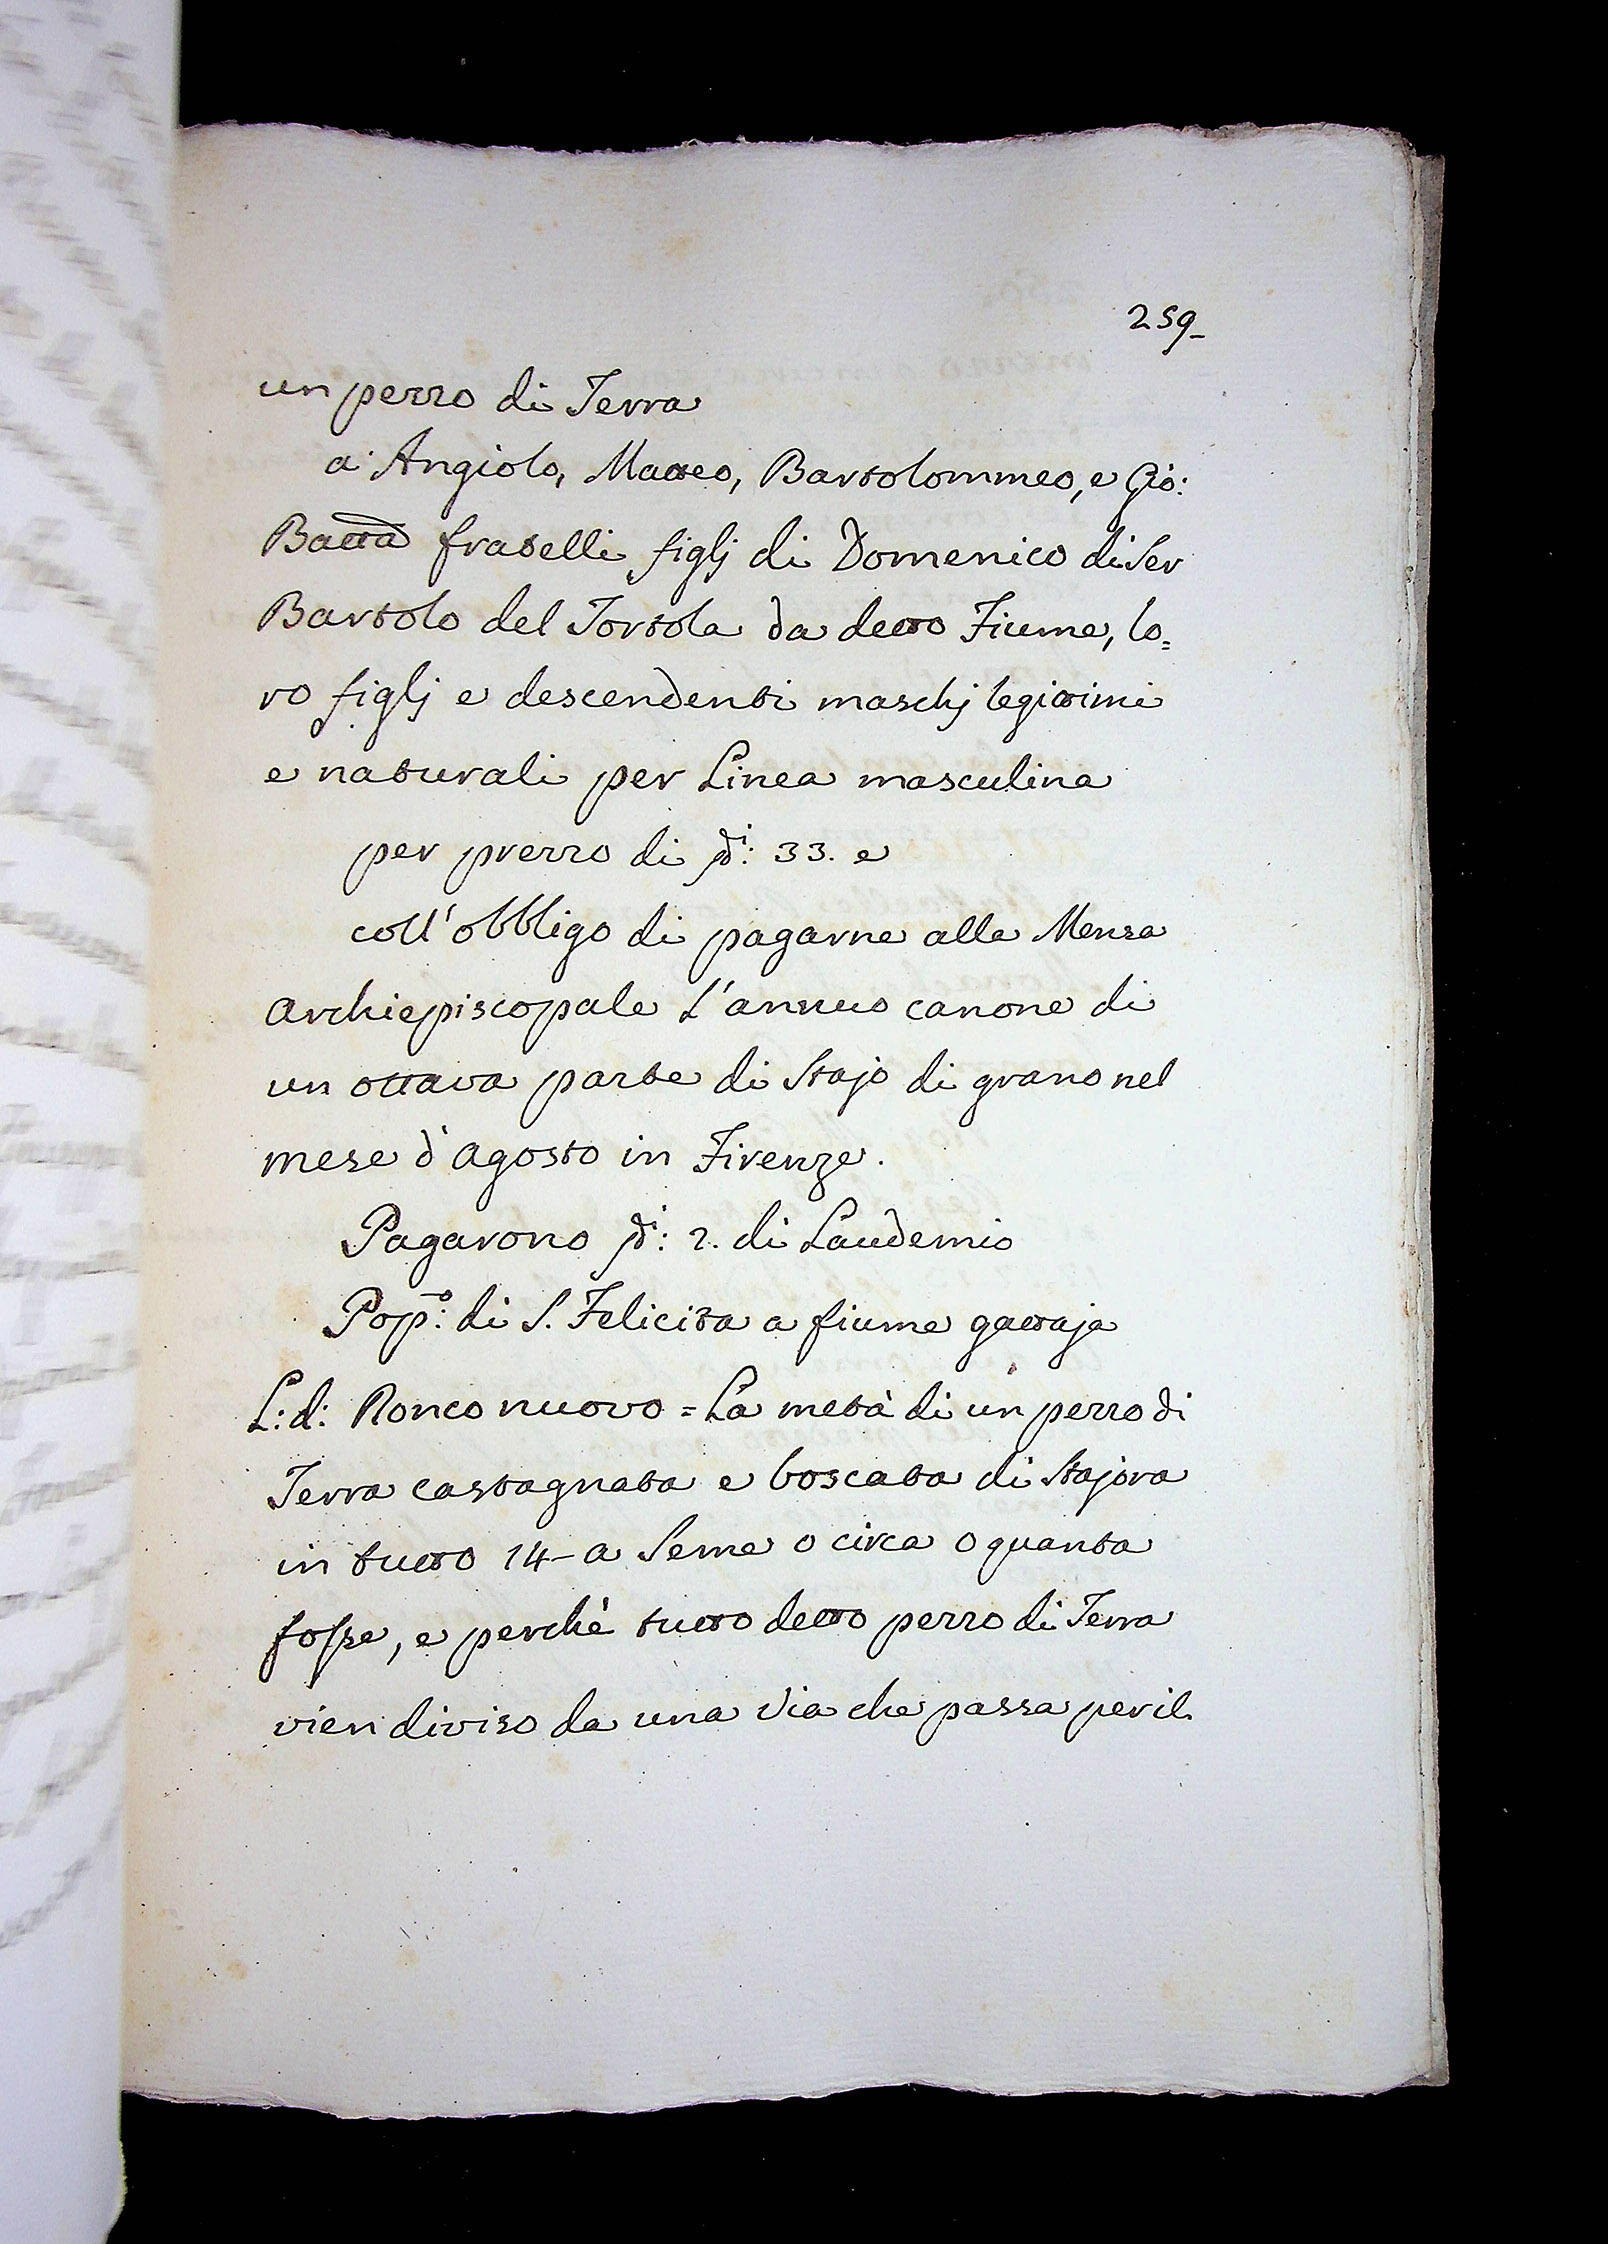 259
un pezzo di Terra
a' Angiolo, Matteo, Bartolommeo, e Gio:
Batta fratelli figlj di Domenico di Ser
Bartolo del Tortola da detto Fiume, lo=
ro figlj e descendenti maschj legittimi
e naturali per Linea masculina
per prezzo di 33. e
coll'obbligo di pagarne alla Mensa
Archiepiscopale l'annuo canone di
un ottava parte di Stajo di grano nel
mese d'Agosto in Firenze.
Pagarono 2. di Laudemio
Pop.º: di S. Felicita a fiume gattaja
L: d: Ronco nuovo = La metà di un pezzo di
Terra castagnata e boscata di Stajora
in tutto 14 - a Seme o circa o quanta
fosse, e perchè tutto detto pezzo di Terra
vien diviso da una Via che passa per il